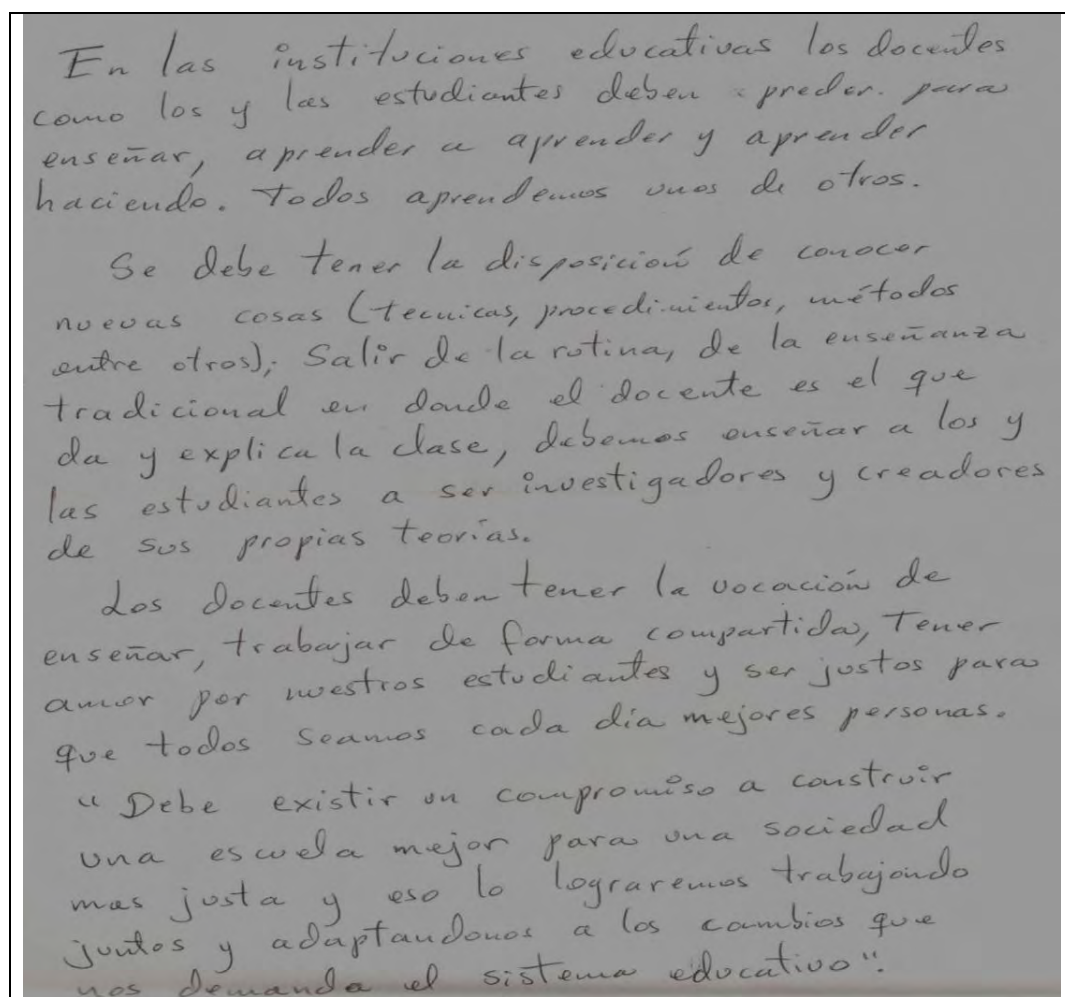 En las instituciones educativas los docentes
como los y las estudiantes deben apreder. para
enseñar, aprender a aprender y aprender
haciendo. Todos aprendemos unos de otros.
Se debe tener la disposición de conocer
nuevas cosas (tecnicas, procedimientos, métodos
entre otros); Salir de la rutina, de la enseñanza
tradicional en donde el docente es el que
da y explica la clase, debemos enseñar a los y
las estudiantes a ser investigadores y creadores
de sus propias teorías.
Los docentes deben tener la vocación de
enseñar, trabajar de forma compartida, Tener
amor por nuestros estudiantes y ser justos para
que todos seamos cada día mejores personas.
"Debe existir un compromiso a construir
una escuela mejor para una sociedad
mas justa y eso lo lograremos trabajando
juntos y adaptandonos a los cambios que
nos demanda el sistema educativo".